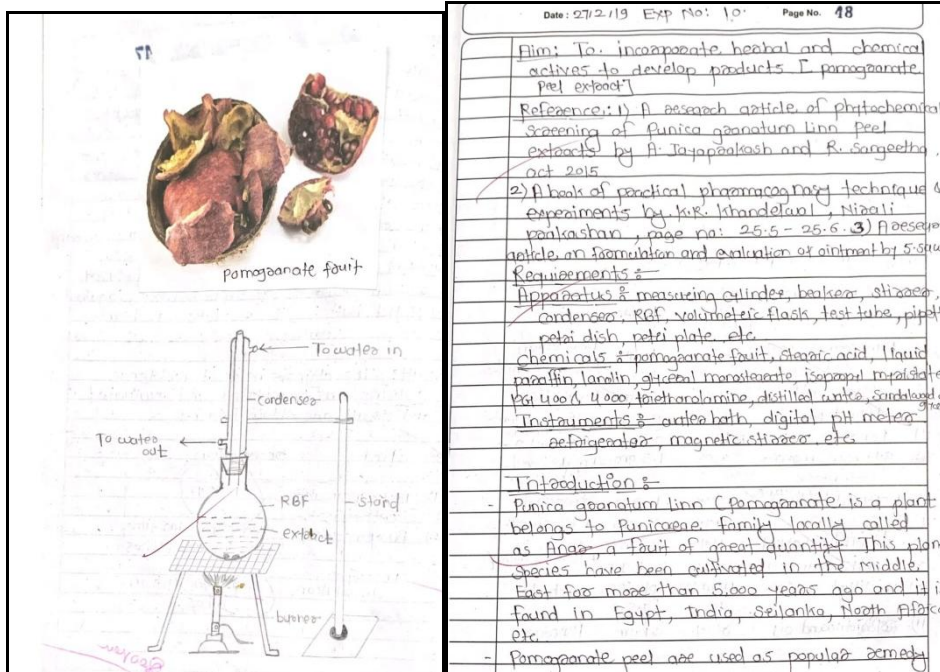 17
pomogranate fruit
To water in
condenser
To water
out
RBF
stand
extract
burner
Date : 27/2/19 Exp No: 10. Page No. 18
Aim: To incorporate herbal and chemical
actives to develop products [pomogranate
Peel extract]
Reference: 1) A research article of phytochemical
screening of Punica granatum Linn Peel
extracts by A. Jayaprakash and R. Sangeetha,
oct 2015
2) A book of practical pharmacognosy technique &
experiments by K.R. Khandelwal, Nirali
prakashan, page no: 25.5 - 25.6. 3) A resear
article on formulation and evaluation of ointment by S.
Requirements :-
Apparatus : measuring cylinder, beaker, stirrer,
condenser, RBF, volumetric flask, test tube, pipet
petri dish, petri plate, etc
chemicals : pomogranate fruit, stearic acid, liquid
paraffin, lanolin, glyceral monostereate, isopropyl myristate
PEG 400 & 4000, triethanolamine, distilled water, sandalwood
Instruments : water bath, digital pH meter
refrigerator, magnetic stirrer, etc.
Introduction :-
- Punica granatum linn (Pomogranate is a plant
belongs to Punicaeae family locally called
as Anar, a fruit of great quantity This plan
species have been cultivated in the middle.
East for more than 5,000 years ago and it i
found in Egypt, India, Srilanka, North Africa
etc.
- Pomogranate peel are used as popular remedy